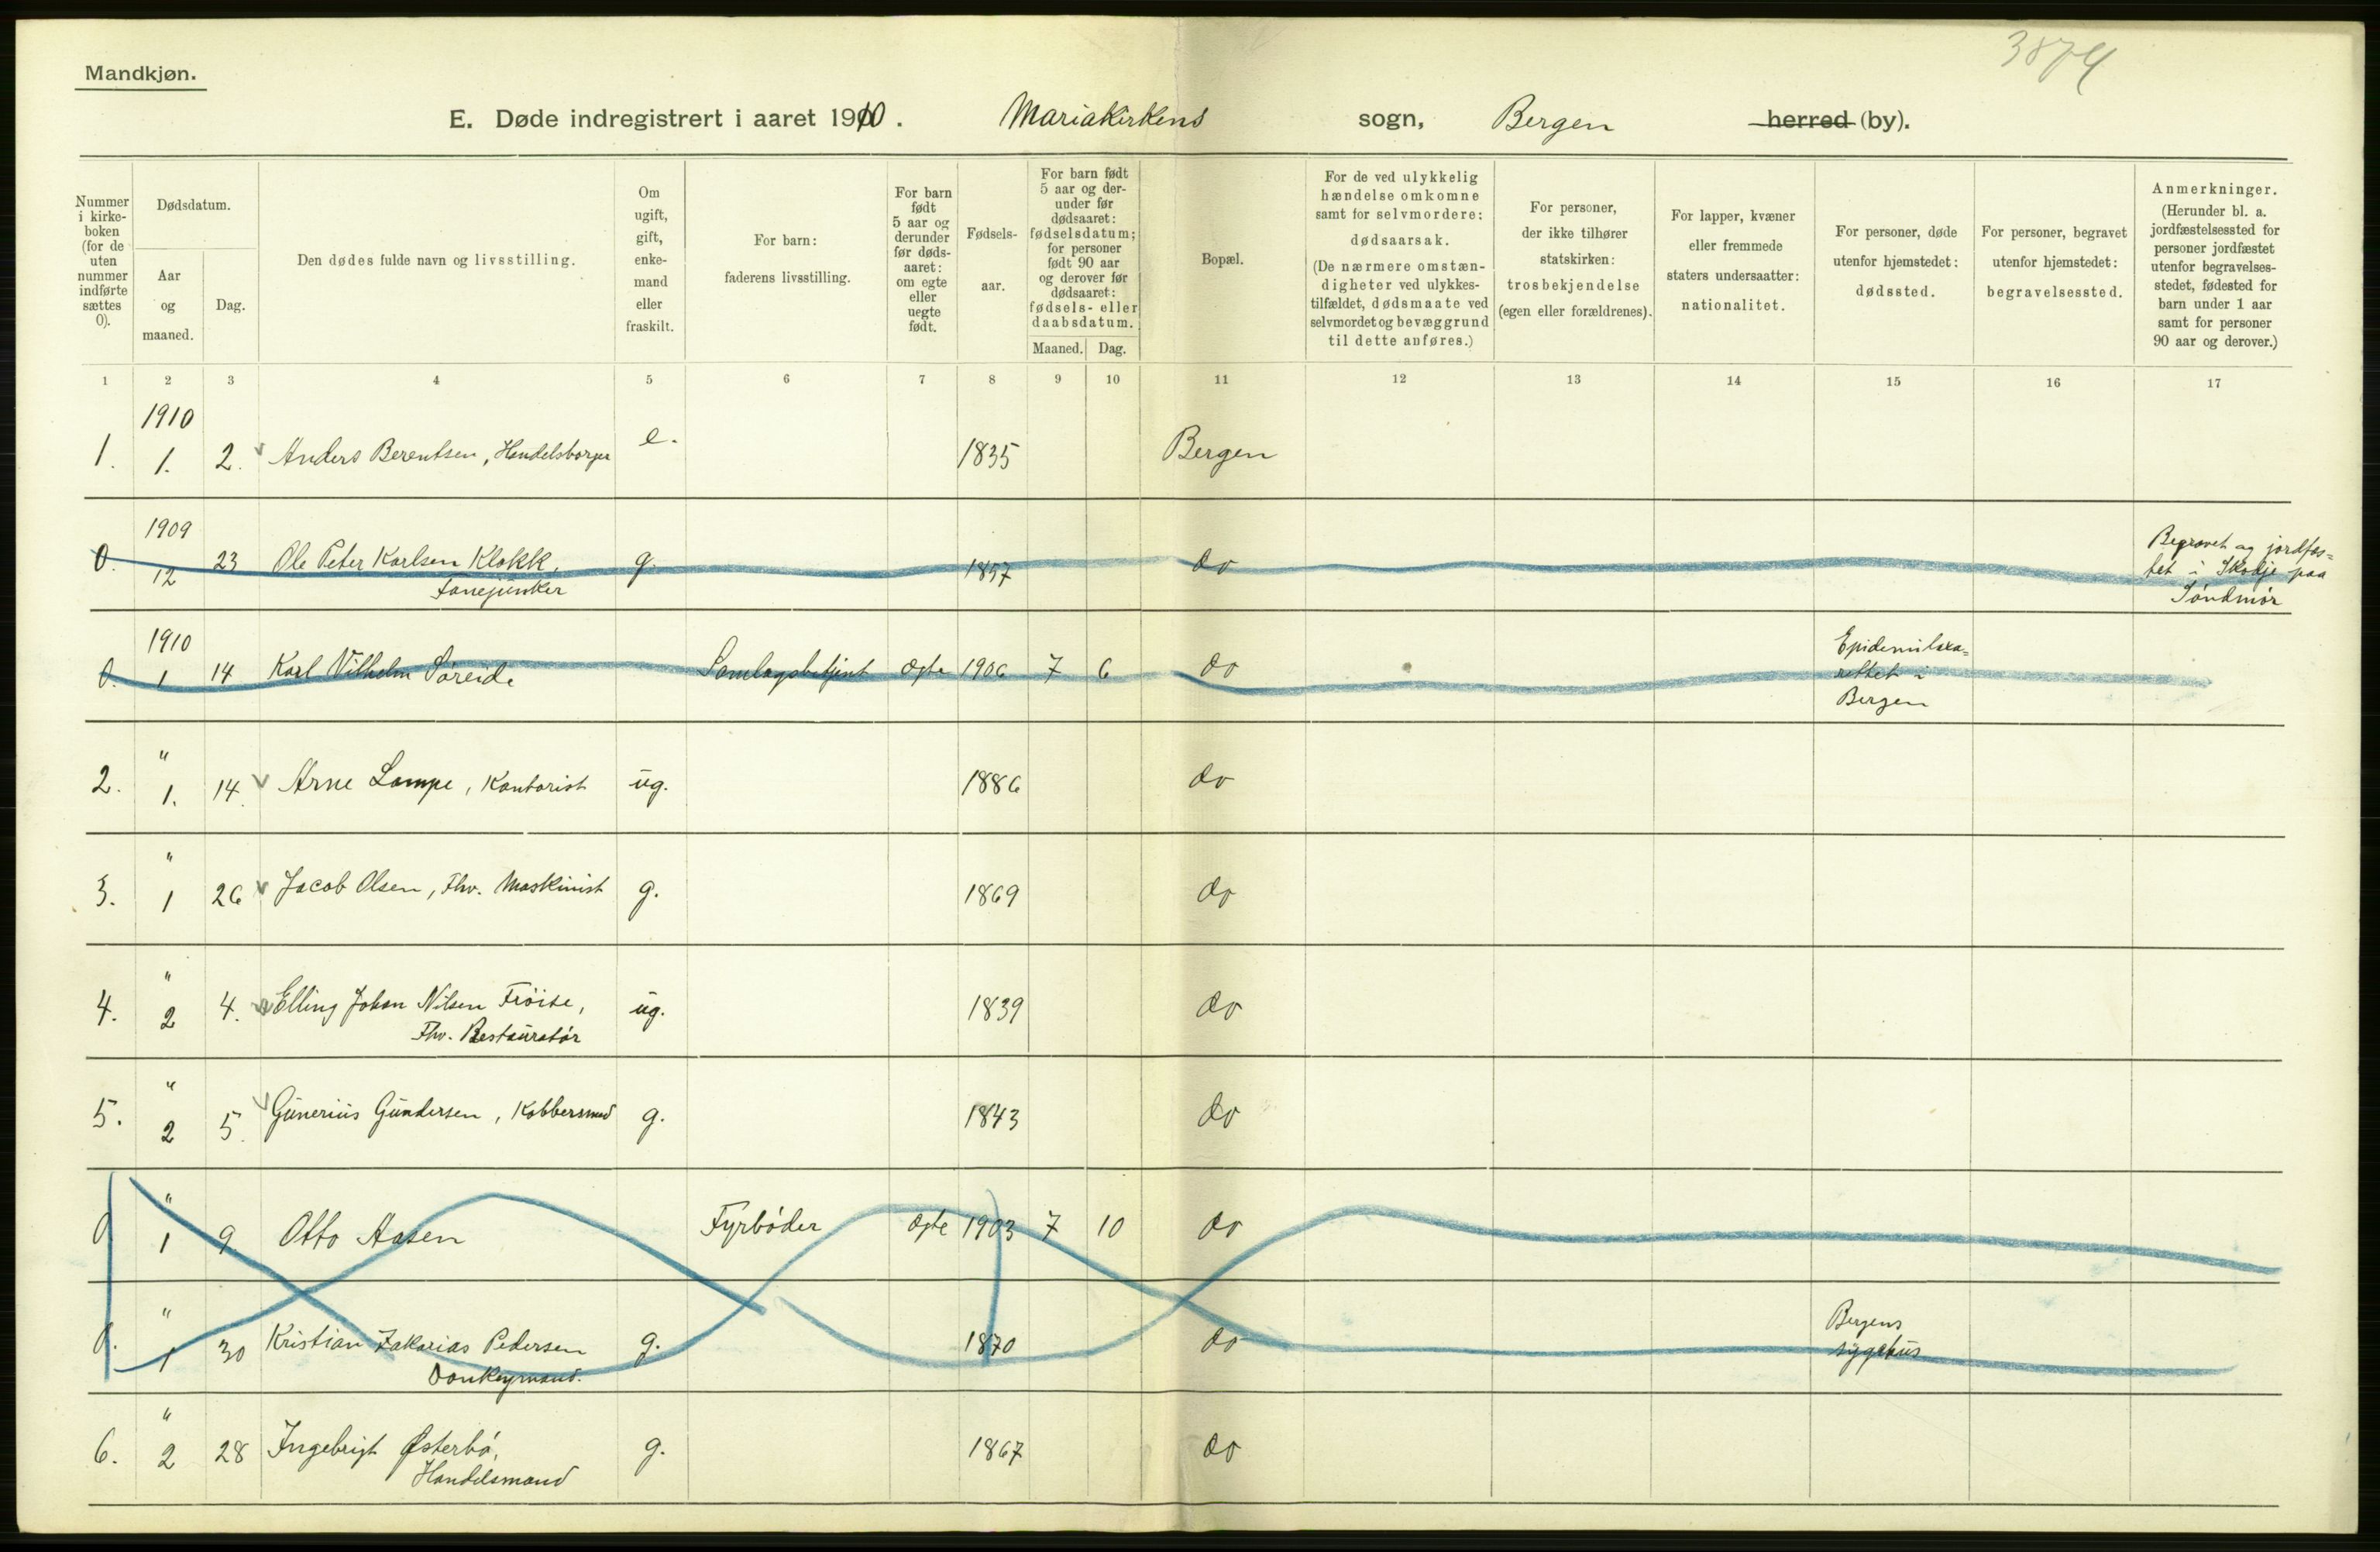 3874
Mandkjøn.
E. Døde indregistrert i aaret 1910. Mariakirkens sogn, Bergen herred (by).
Nummer i kirkeboken (for de uten nummer indførte sættes 0).
Dødsdatum.
Aar og maaned.
Dag.
Den dødes fulde navn og livsstilling.
Om ugift, gift, enkemand eller fraskilt.
For barn: faderens livsstilling.
For barn født 5 aar og derunder før dødsaaret: om egte eller uegte født.
Fødselsaar.
For barn født 5 aar og derunder før dødsaaret: fødselsdatum; for personer født 90 aar og derover før dødsaaret: fødsels- eller daabsdatum.
Maaned. Dag.
Bopæl.
For de ved ulykkelig hændelse omkomne samt for selvmordere: dødsaarsak. (De nærmere omstændigheter ved ulykkestilfældet, dødsmaate ved selvmordet og bevæggrund til dette anføres.)
For personer, der ikke tilhører statskirken: trosbekjendelse (egen eller forældrenes).
For lapper, kvæner eller fremmede staters undersaatter: nationalitet.
For personer, døde utenfor hjemstedet: dødssted.
For personer, begravet utenfor hjemstedet: begravelsessted.
Anmerkninger. (Herunder bl. a. jordfæstelsessted for personer jordfæstet utenfor begravelsesstedet, fødested for barn under 1 aar samt for personer 90 aar og derover.)
1 2 3 4 5 6 7 8 9 10 11 12 13 14 15 16 17
1910
1. 1. 2. Anders Berentsen, Handelsborger e. 1835 Bergen
1909
0. 12 23 Ole Peter Karlsen Klokk, g. 1857 do Begravet og jordfæs=
Fanejunker tet i Skodje paa
Søndmør
1910
0. 1 14 Karl Vilhelm Søreide Samlagsbetjent ægte 1906 7 6 do Epidemilaza=
rettet i
Bergen
"
2. 1. 14. Arne Lampe, Kontorist ug. 1886 do
"
3. 1 26 Jacob Olsen, Fhv. Maskinist g. 1869 do
"
4. 2 4. Elling Johan Nilsen Fröise, ug. 1839 do
Fhv. Restauratør
"
5. 2 5. Gunerius Gundersen, Kobbersmed g. 1843 do
"
0 1 9 Otto Aasen Fyrbøder ægte 1903 7 10 do
"
0. 1 30 Kristian Zakarias Pedersen g. 1870 do Bergens
Donkeymand. sygehus
"
6. 2 28 Ingebrigt Østerbø, g. 1867 do
Handelsmand